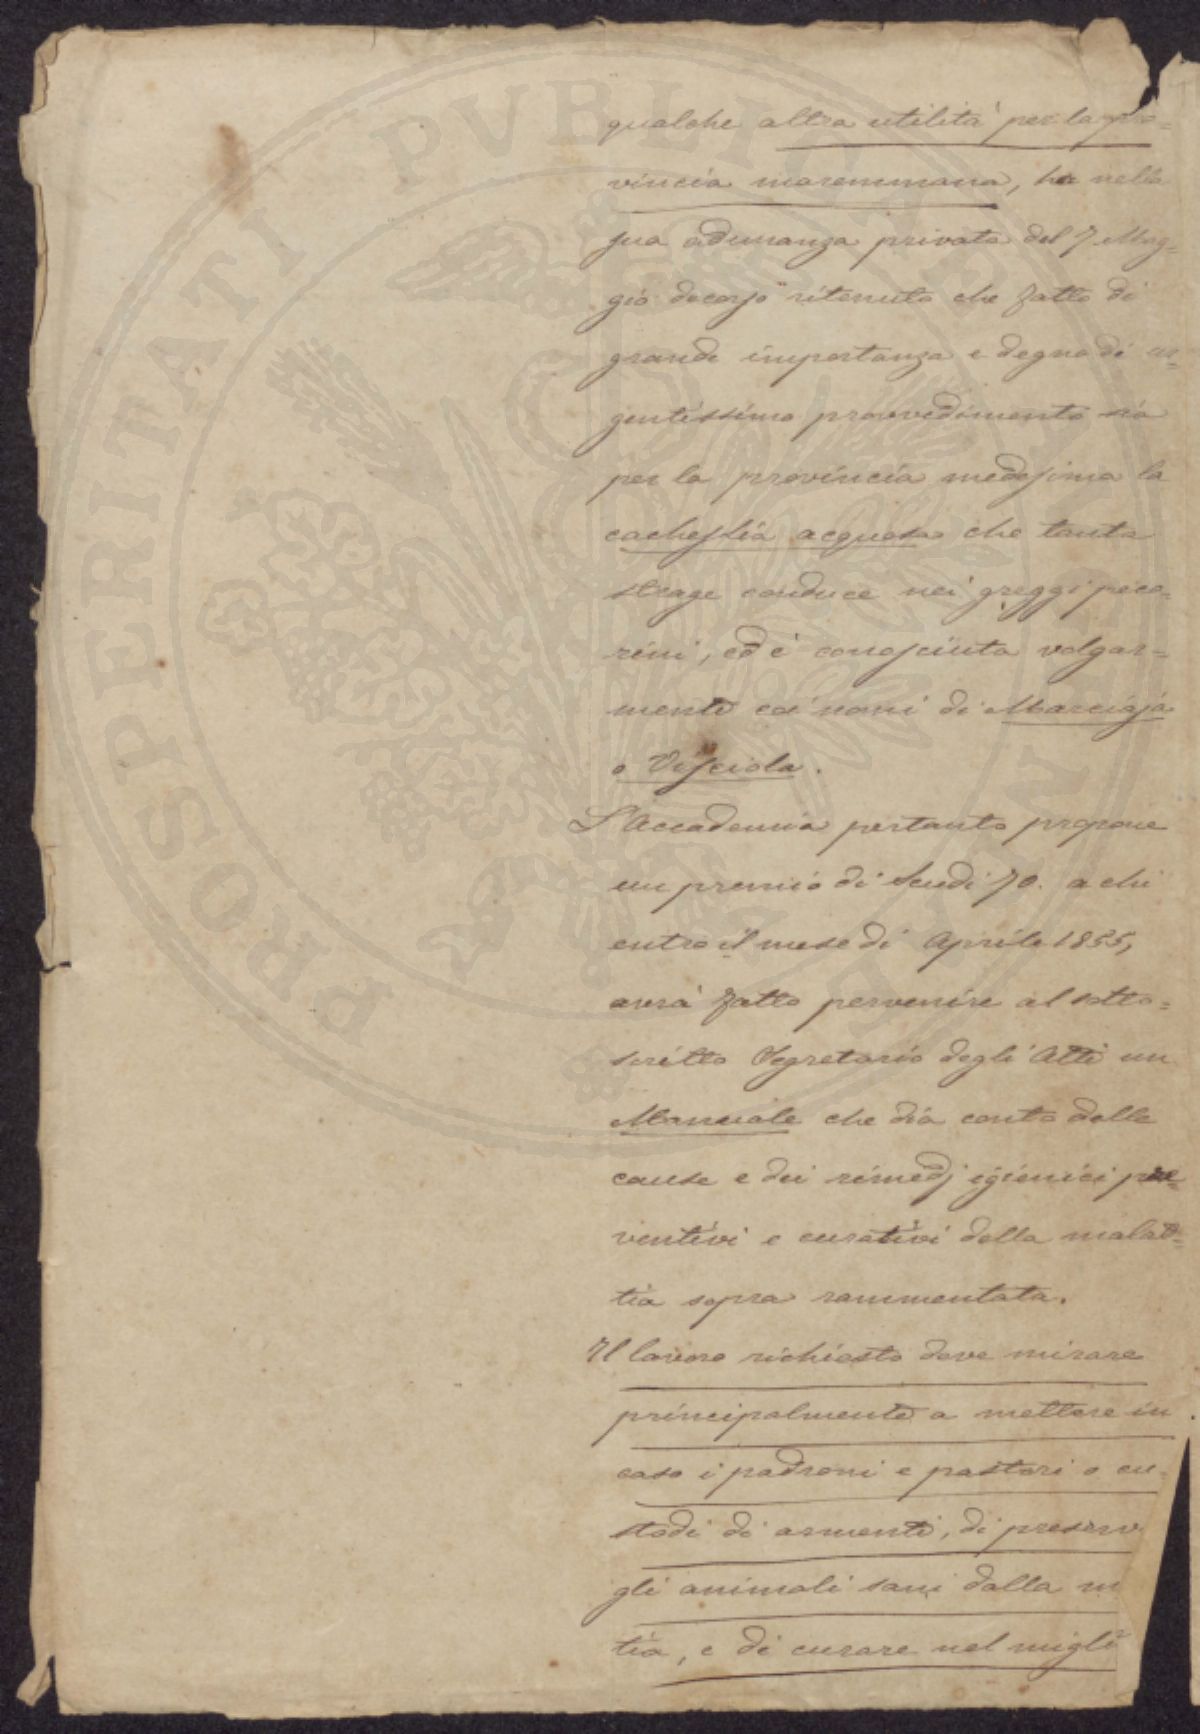 qualche altra utilità per la pro=
vincia maremmana, ha nella
sua adunanza privata del 7 Mag=
gio decorso ritenuto che fatto di
grande importanza e degno di ur=
gentissimo provvedimento sia
per la provincia medesima la
cachessia acquosa che tanta
strage conduce nei greggi peco=
rini, ed è conosciuta volgar=
mente coi nomi di Marciaja
o Visciola.
L'Accademia pertanto propone
un premio di Scudi 70. a chi
entro il mese di Aprile 1855,
avrà fatto pervenire al sotto=
scritto Segretario degli Atti un
Manuale che dia conto delle
cause e dei rimedj igienici pre=
ventivi e curativi della malat=
tia sopra rammentata.
Il lavoro richiesto deve mirare
principalmente a mettere in
caso i padroni e pastori o cu=
stodi di armenti, di preserv
gli animali sani dalla m
tia, e di curare nel migli
PROSPERITATI PVBLICAE